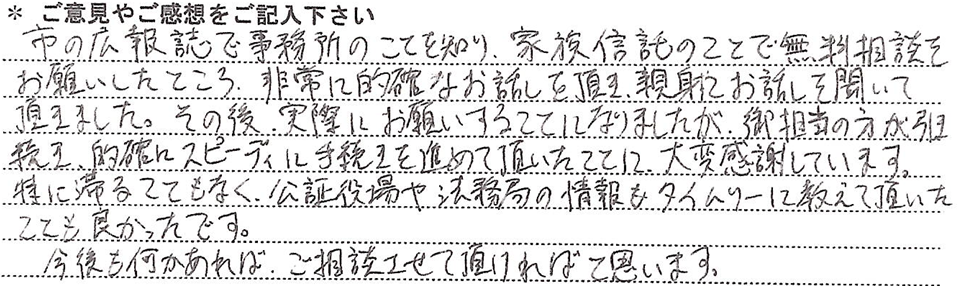 * ご意見やご感想をご記入下さい
市の広報誌で事務所のことを知り、家族信託のことで無料相談を
お願いしたところ、非常に的確なお話しを頂き、親身にお話しを聞いて
頂きました。その後、実際にお願いすることになりましたが、御担当の方が引
続き、的確にスピーディに手続きを進めて頂いたことに、大変感謝しています。
特に滞ることもなく、公証役場や法務局の情報もタイムリーに教えて頂いた
ことも良かったです。
今後も何かあれば、ご相談させて頂ければと思います。